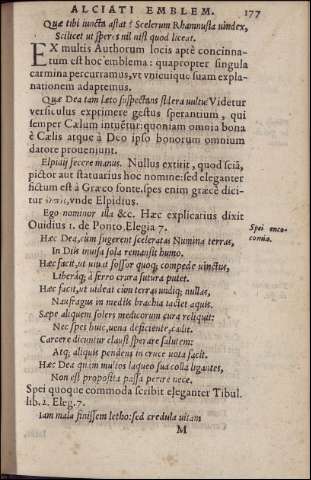 ALCIATI EMBLEM. 177
Quæ tibi iuncta astat? Scelerum Rhamnusia uindex,
Scilicet ut speres nil nisi quod liceat.
EX multis Authorum locis aptè concinna-
tum est hoc emblema: quapropter singula
carmina percurramus, vt vnicuique suam expla-
nationem adaptemus.
Quæ Dea tam læto suspectans sidera uultu? Videtur
versiculus exprimere gestus sperantium, qui
semper Cælum intuẽtur: quoniam omnia bona
è Cælis atque à Deo ipso bonorum omnium
datore proueniunt.
Elpidij fecere manus. Nullus extitit, quod sciã,
pictor aut statuarius hoc nomine: sed eleganter
fictum est à Græco fonte. spes enim græcè dici-
tur ἐλπὶς, vnde Elpidius.
Ego nominor illa &c. Hæc explicatius dixit
Ouidius 1. de Ponto. Elegia 7.
Spei enco-
comia.
Hæc Dea, cùm fugerent sceleratas Numina terras,
In Diis inuisa sola remansit humo.
Hæc facit, ut uiuat fossor quoq; compede uinctus,
Liberáq; à ferro crura futura putet.
Hæc facit, ut uideat cùm terras undiq; nullas,
Naufragus in mediis brachia iactet aquis.
Sæpe aliquem solers medicorum cura reliquit:
Nec spes huic, uena deficiente, cadit.
Carcere dicuntur clausi sperare salutem:
Atq; aliquis pendens in cruce uota facit.
Hæc Dea quàm multos laqueo sua colla ligantes,
Non est proposita passa perire nece.
Spei quoque commoda scribit eleganter Tibul.
lib. 2. Eleg. 7.
Iam mala finissem letho: sed credula uitam
M